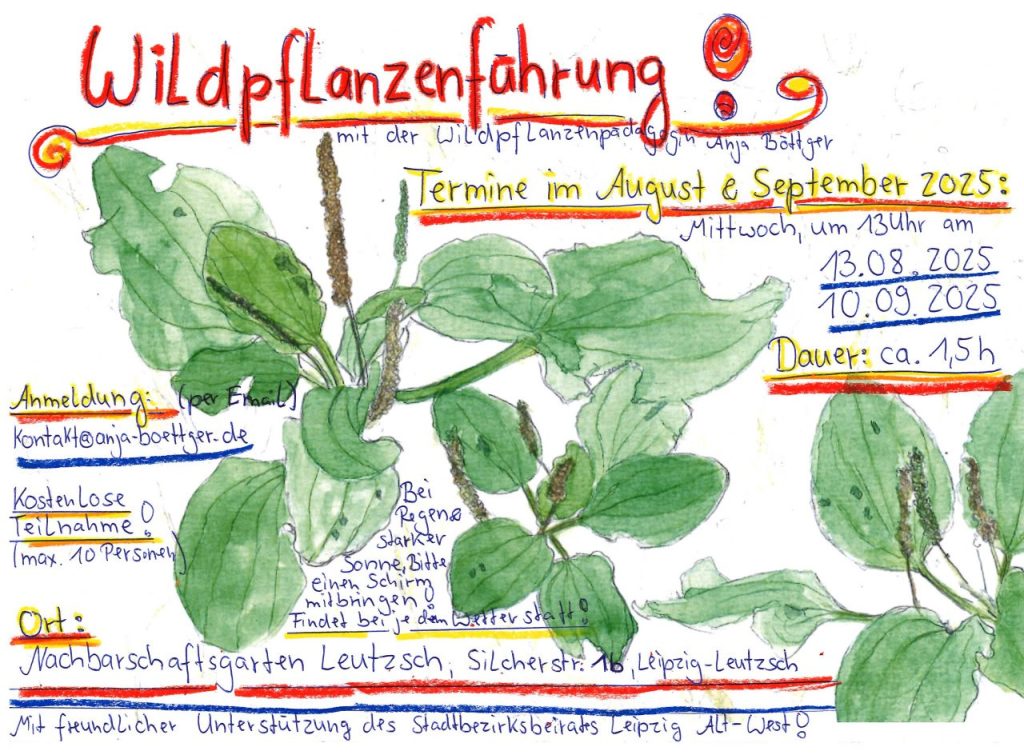 Wildpflanzenführung!
mit der Wildpflanzenpädagogin Anja Böttger
Termine im August & September 2025:
Mittwoch, um 13Uhr am
13.08.2025
10.09.2025
Dauer: ca. 1,5h
Anmeldung: (per Email)
kontakt@anja-boettger.de
Kostenlose
Teilnahme!
(max. 10 Personen)
Bei
Regen &
starker
Sonne, Bitte
einen Schirm
mitbringen!
Findet bei jedem Wetter statt!
Ort:
Nachbarschaftsgarten Leutzsch, Silcherstr. 16, Leipzig-Leutzsch
Mit freundlicher Unterstützung des Stadtbezirksbeirates Leipzig Alt-West!